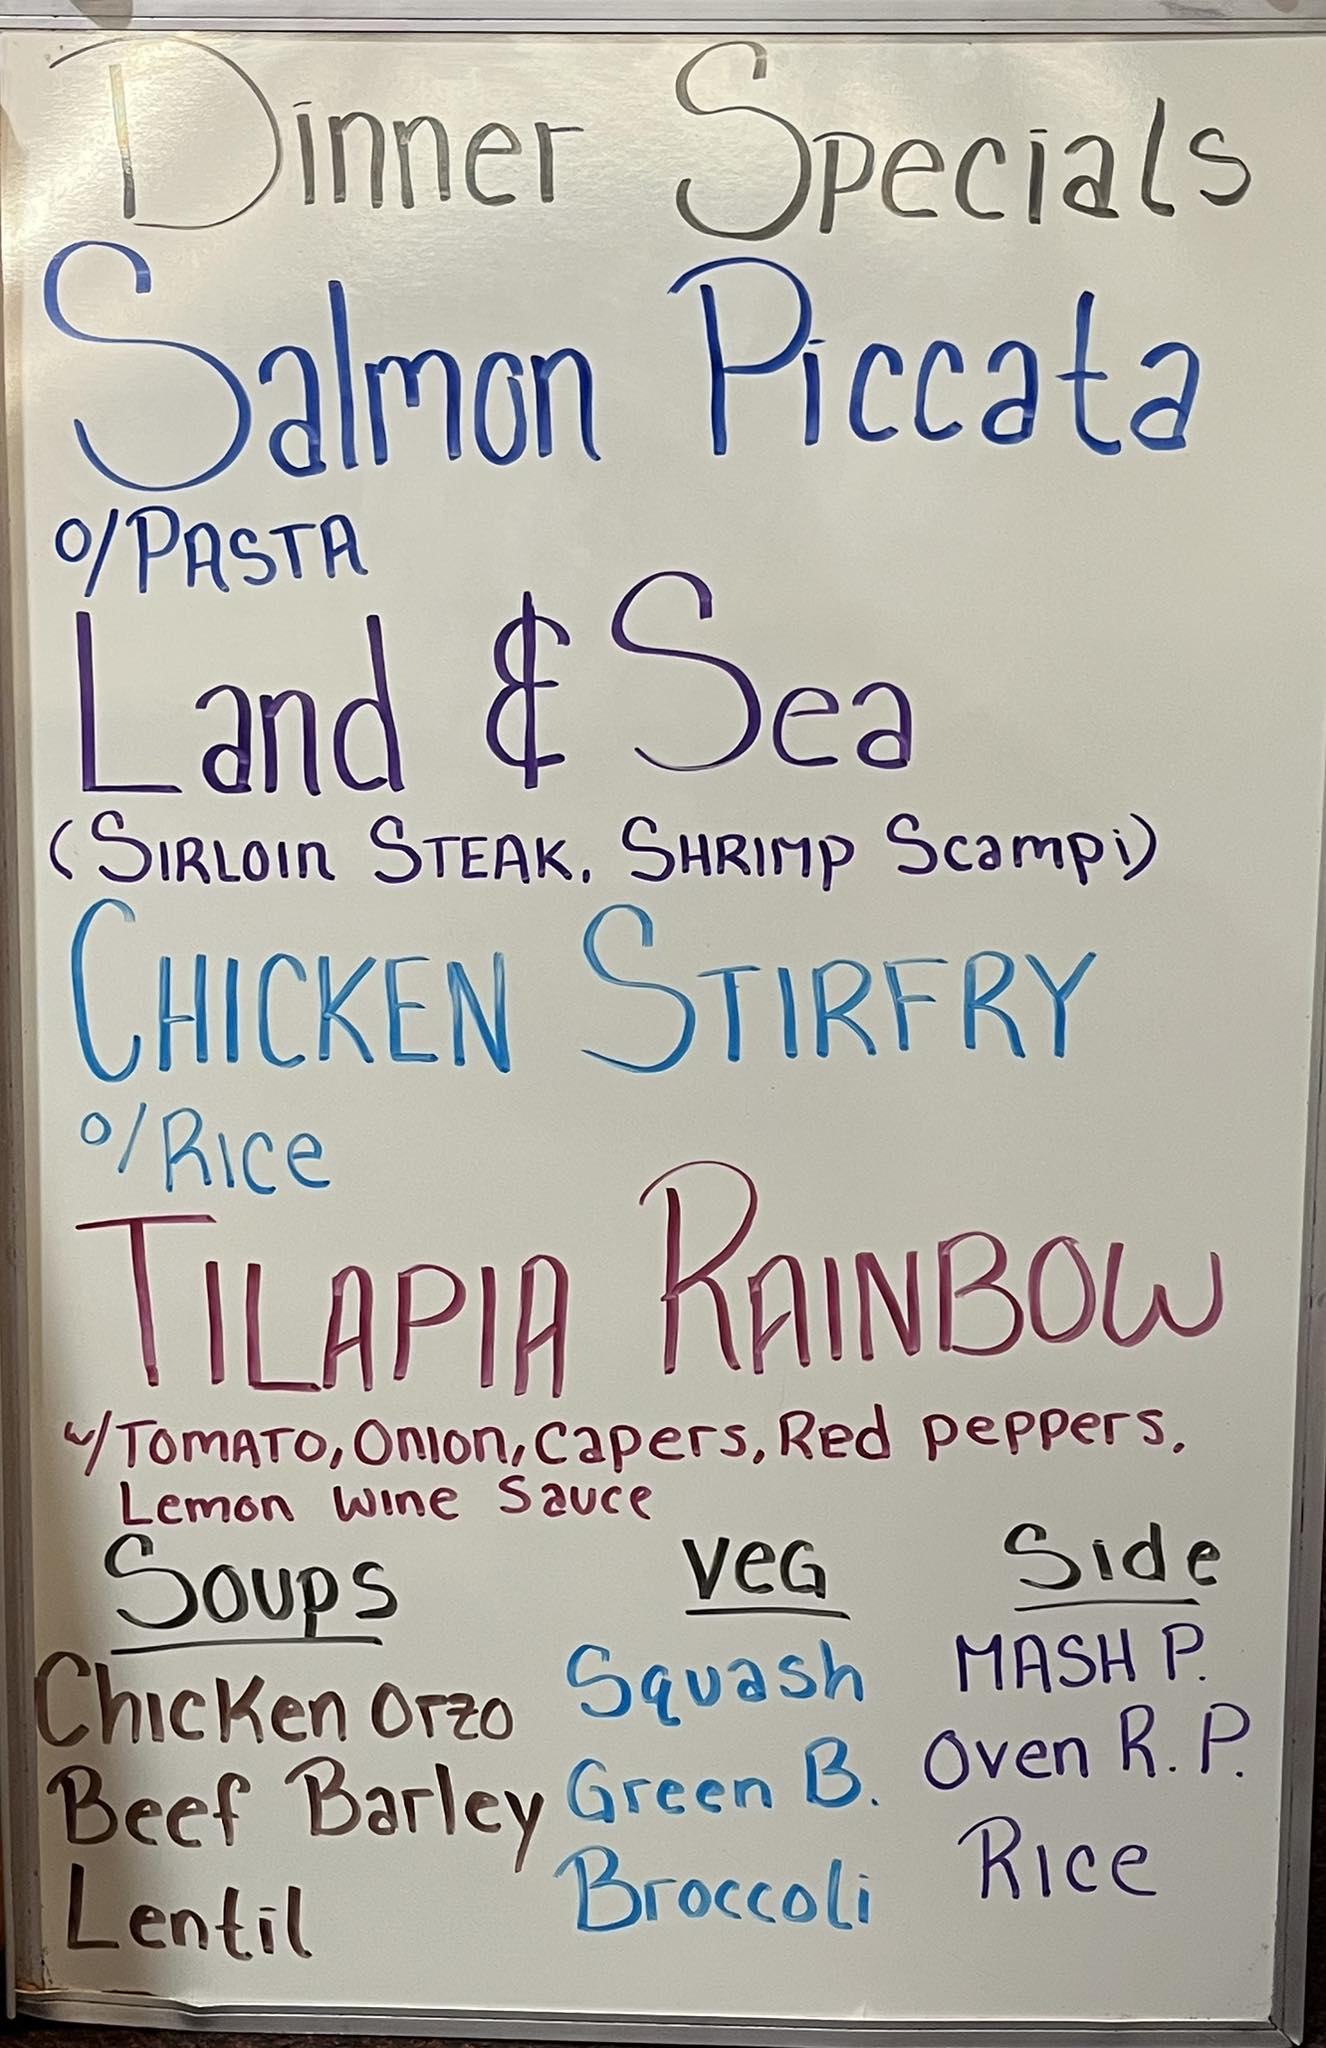 Dinner Specials
Salmon Piccata
o/PASTA
Land & Sea
(SIRLOIN STEAK, SHRIMP Scampi)
CHICKEN STIRFRY
o/Rice
TILAPIA RAINBOW
w/TOMATO, Onion, Capers, Red peppers,
Lemon Wine Sauce
Soups
Chicken Orzo
Beef Barley
Lentil
Veg
Squash
Green B.
Broccoli
Side
MASH P.
Oven R. P.
Rice